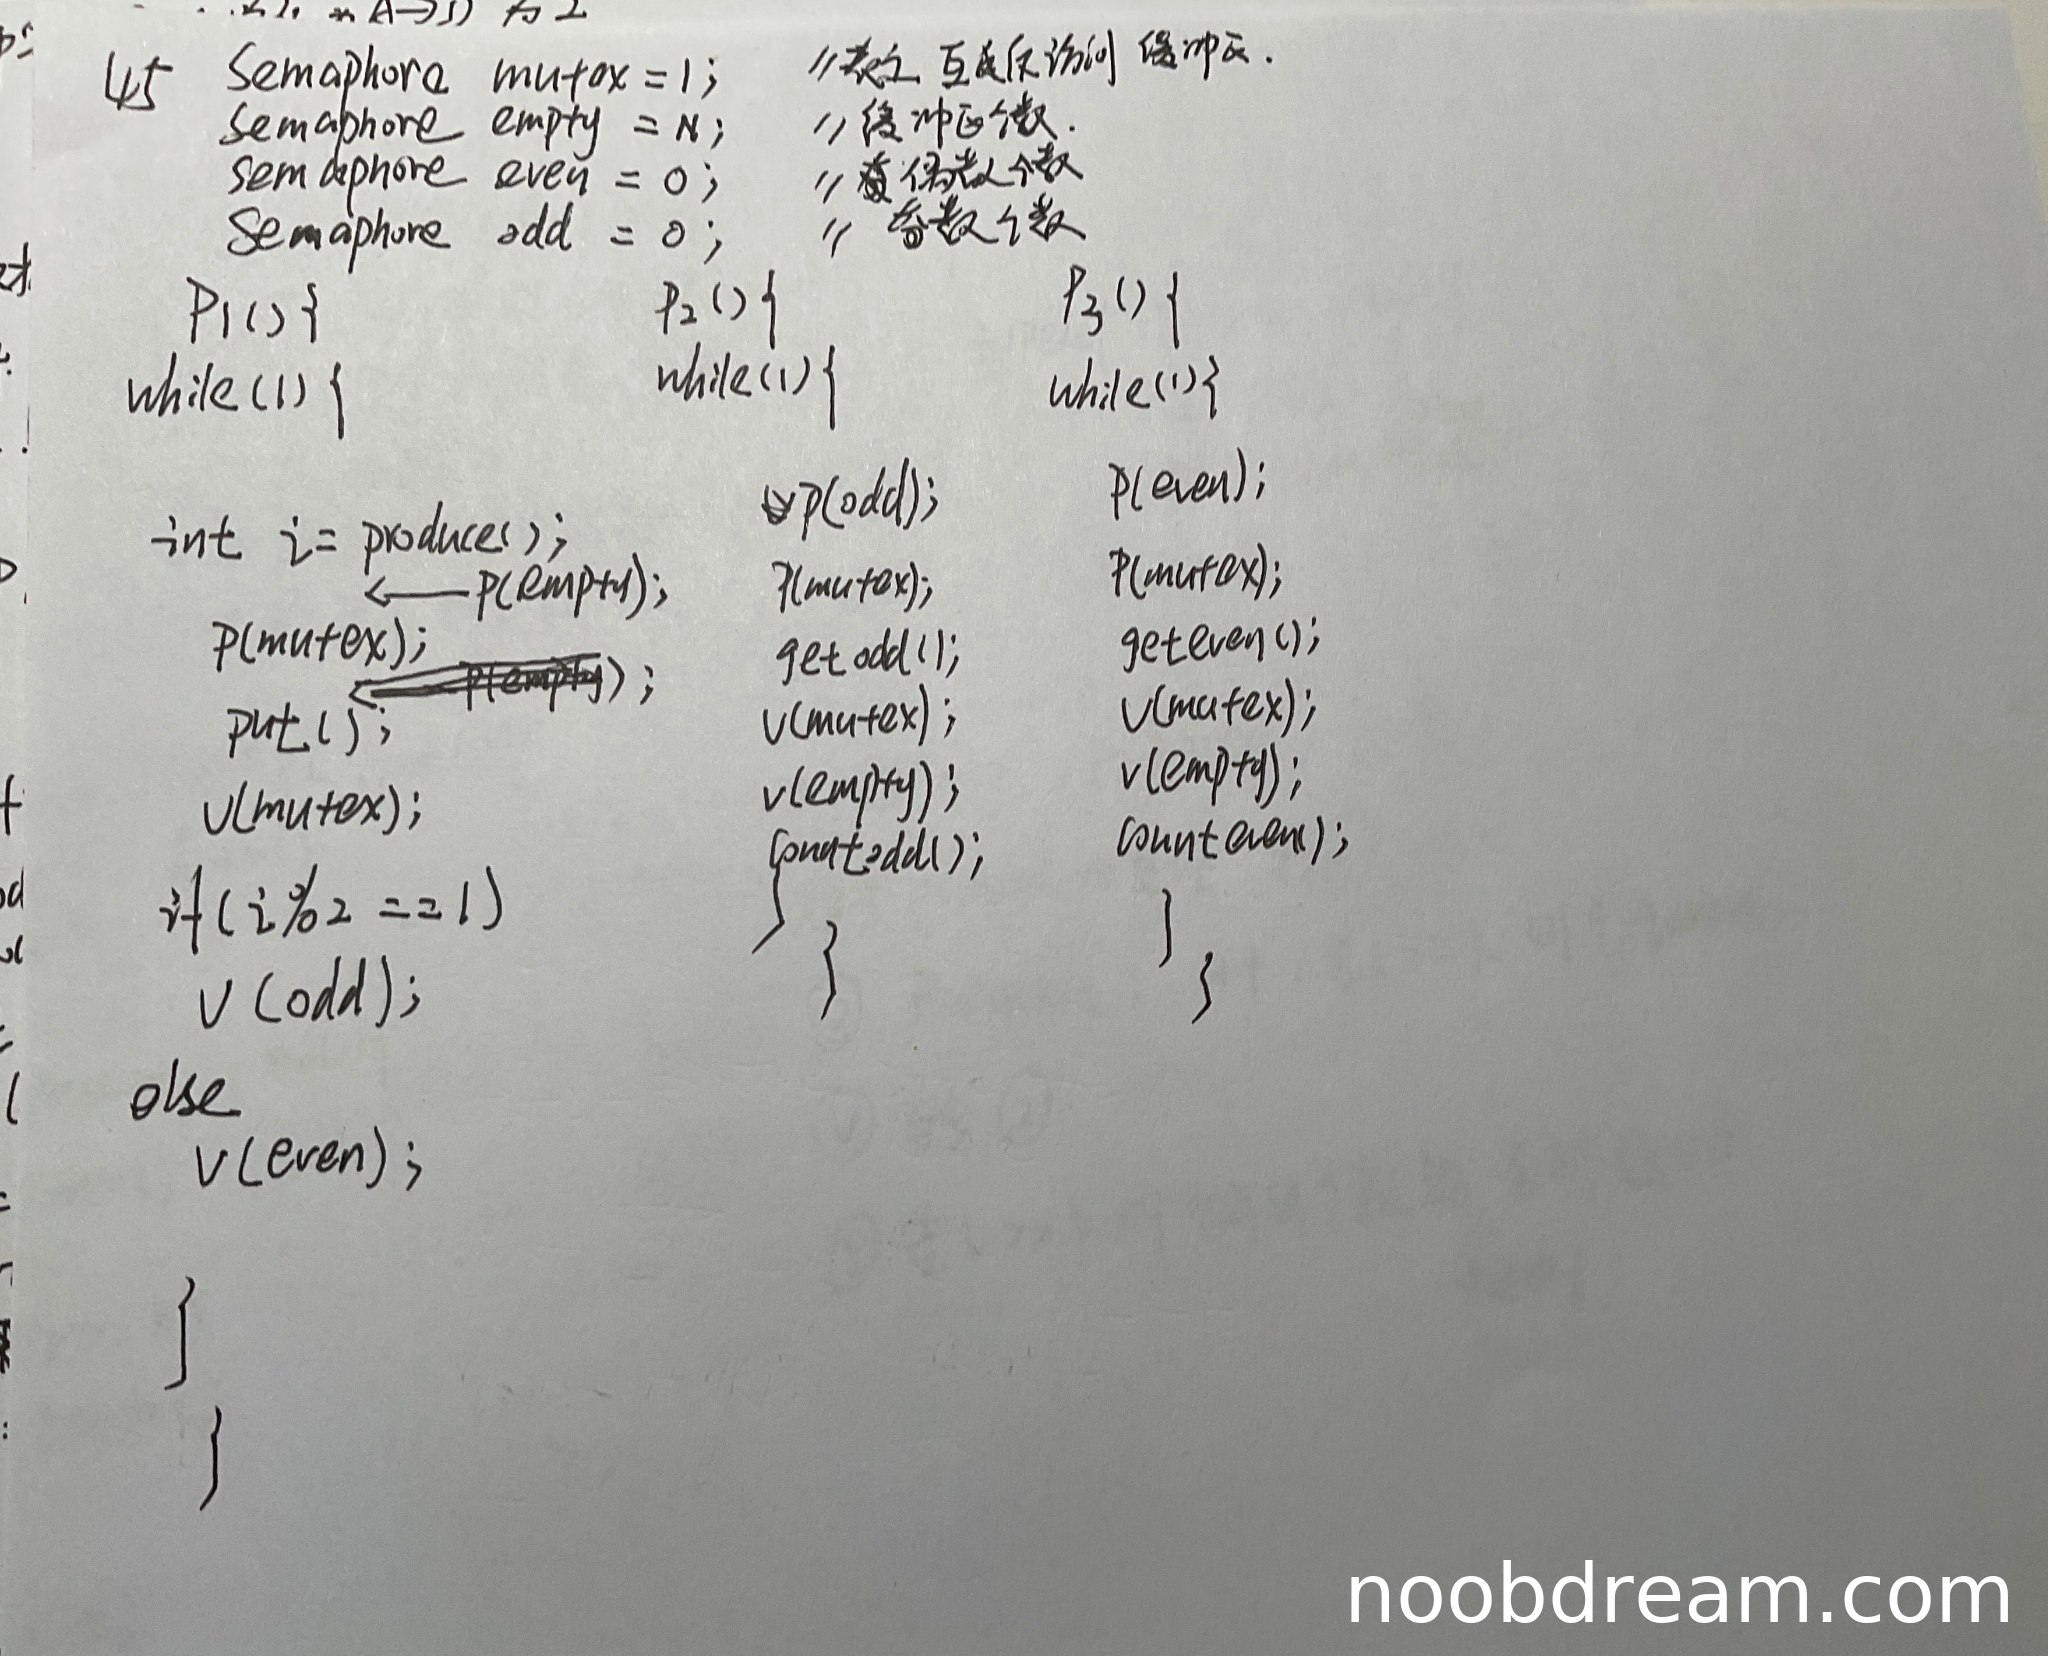 45 Semaphore mutex = 1; // 表示互斥访问缓冲区.
semaphore empty = N; // 缓冲区个数.
semaphore even = 0; // 偶数个数
Semaphore odd = 0; // 奇数个数
P1(){
while(1){
int i = produce();
← P(empty);
P(mutex);
put();
V(mutex);
if(i%2 == 1)
V(odd);
else
V(even);
}
}
P2(){
while(1){
P(odd);
P(mutex);
getodd();
V(mutex);
V(empty);
countodd();
}
}
P3(){
while(1){
P(even);
P(mutex);
geteven();
V(mutex);
V(empty);
counteven();
}
}
noobdream.com